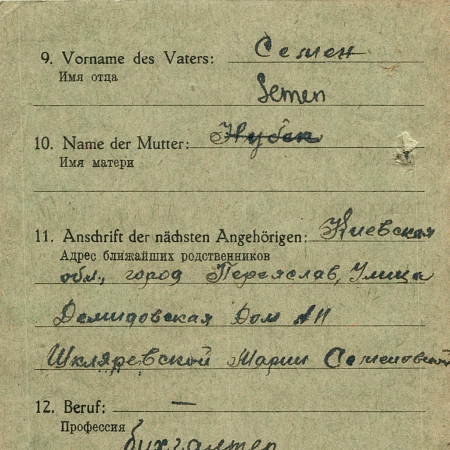 9. Vorname des Vaters: Семен
Имя отца
Semen
10. Name der Mutter:
Имя матери
11. Anschrift der nächsten Angehörigen: Киевская
Адрес ближайших родственников
обл., город Переяслав, Улица
Демидовская Дом
Шкляревской Марии Семеновной
12. Beruf: —
Профессия
бухгалтер